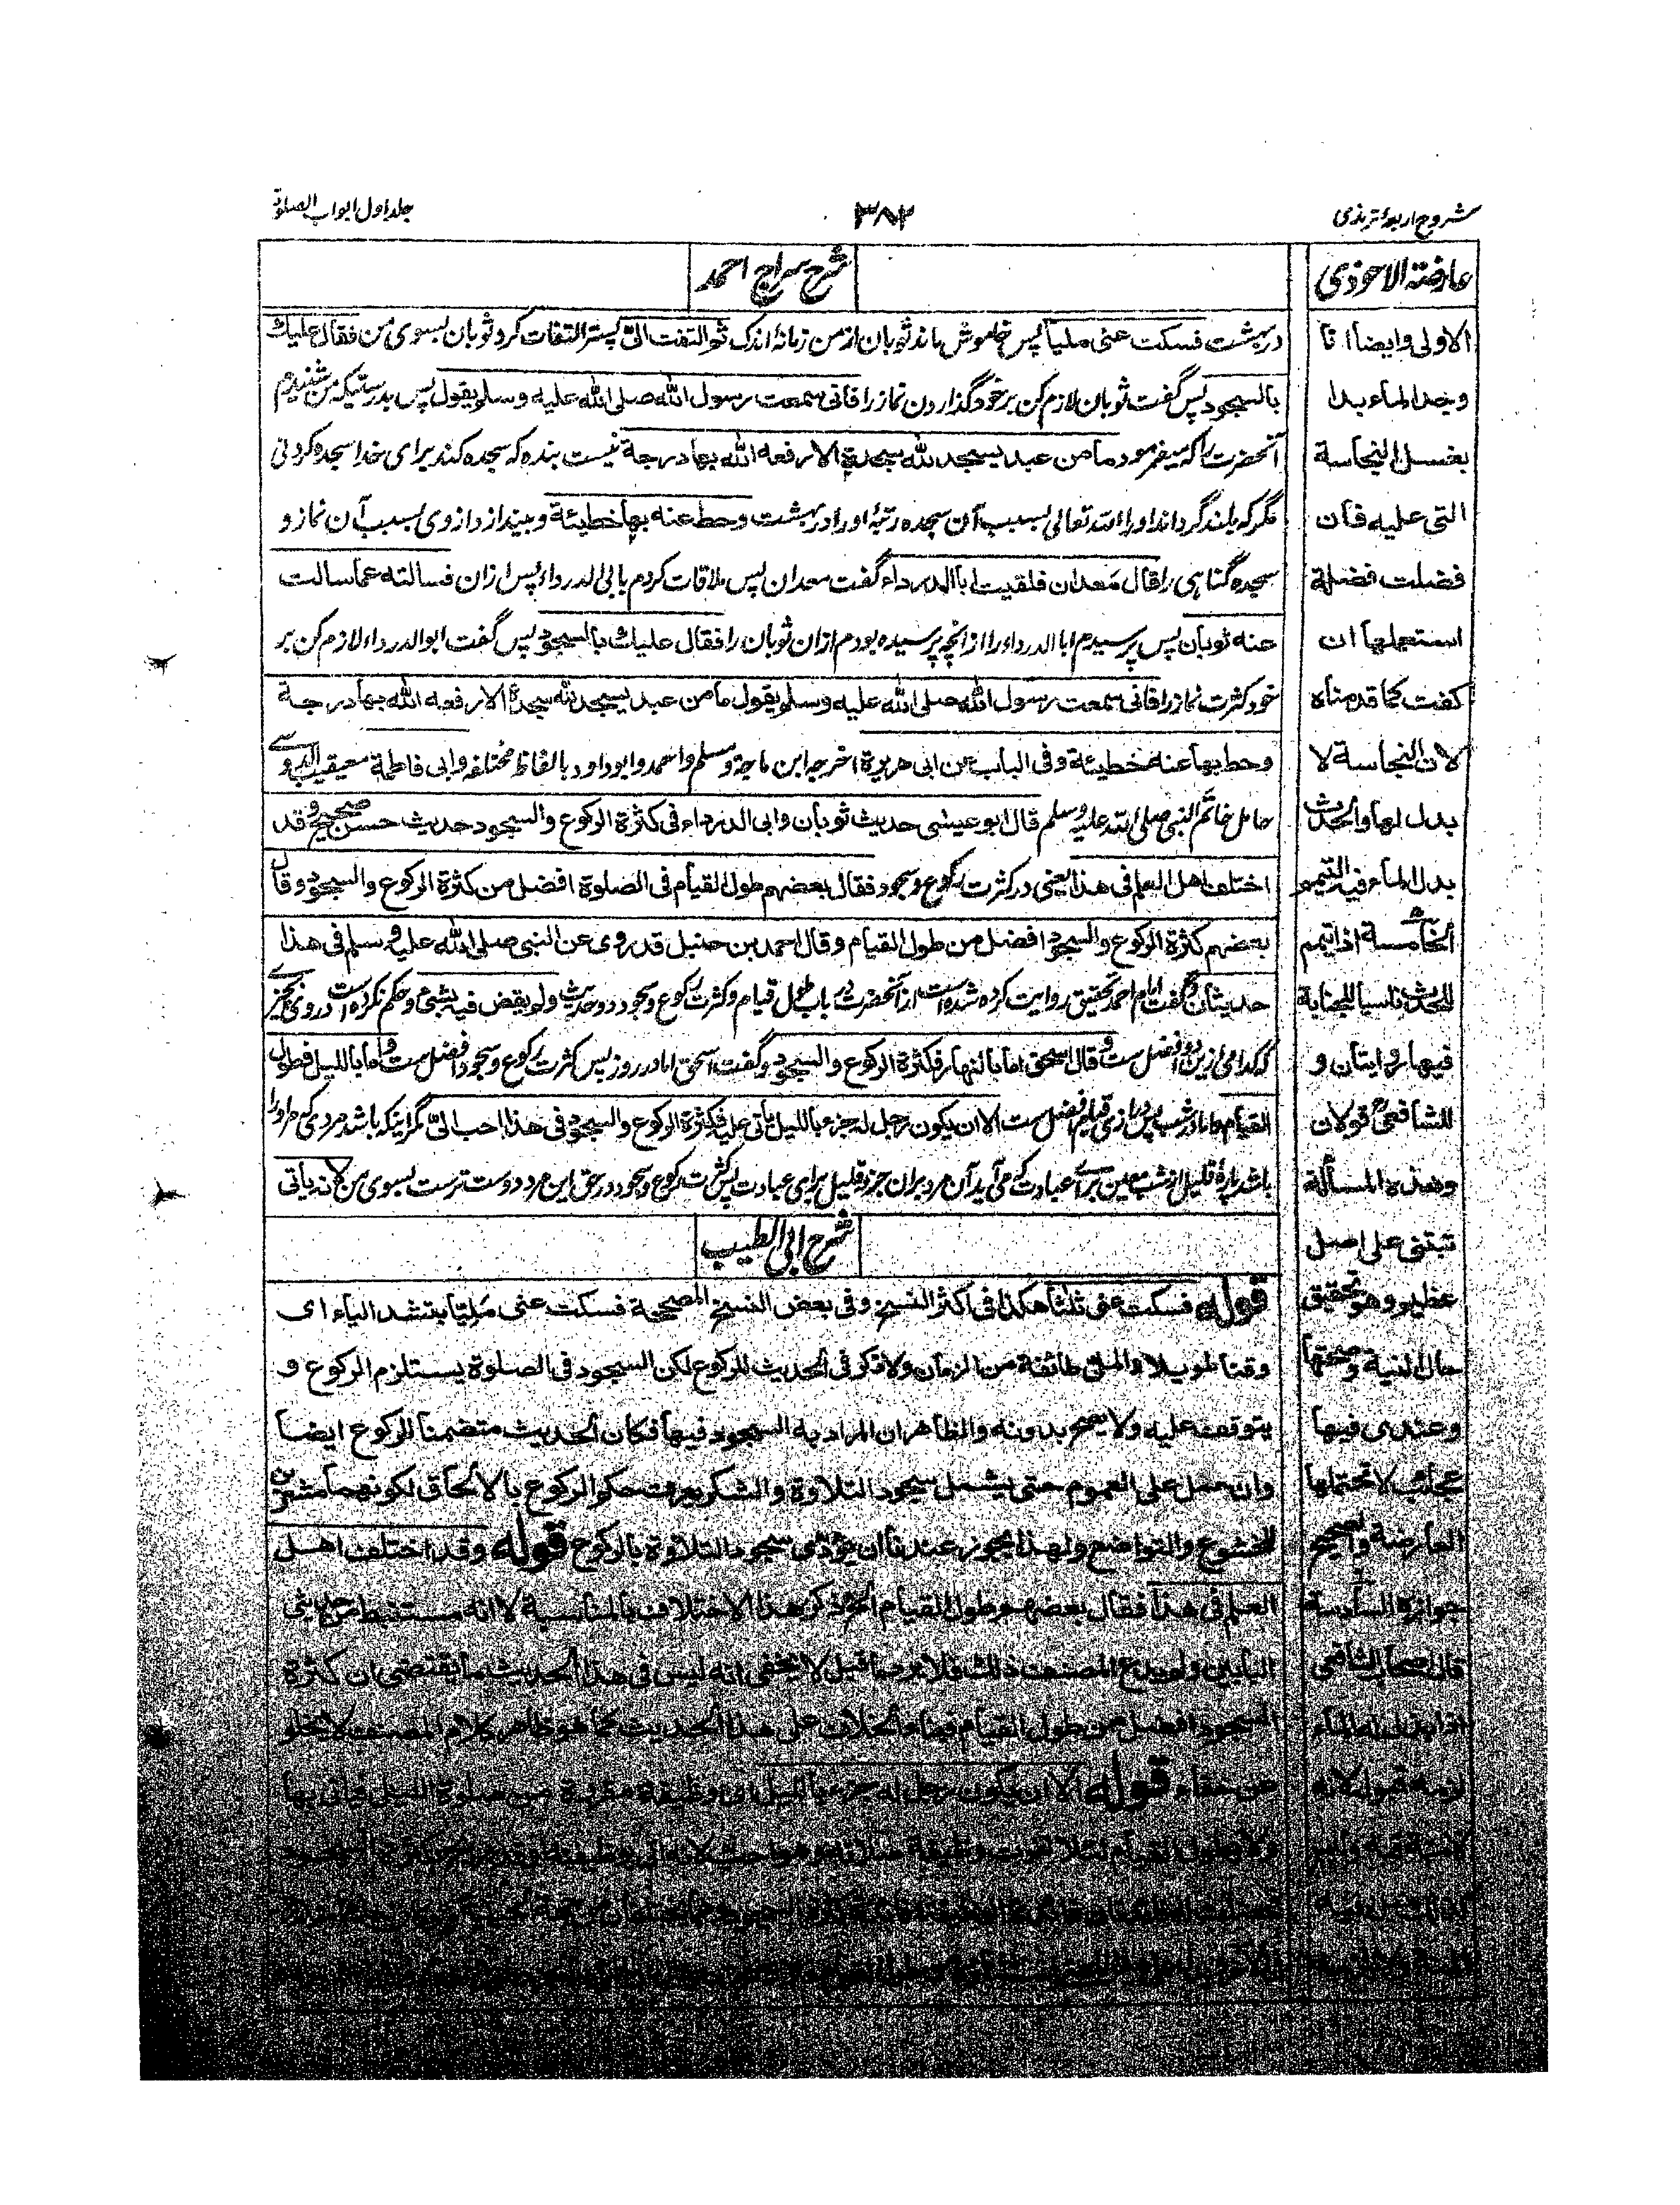 شروح اربعۂ ترمذی
۳۸۲
جلد اول ابواب الصلوة
عارضة الاحوذی
الاولى وايضا انا
وجد الماء بدا
بغسل النجاسة
التى عليه فان
فضلت فضلة
استعملها ان
كفت كما قدمناه
لان النجاسة لا
بدل لها والحدث
بدل الماء فيه التيمم
الخامسة اذا تيمم
للحدث ناسيا للجنابة
فيها روايتان و
للشافعى قولان
وهذه المسألة
تبتنى على اصل
عظيم وهو تحقيق
حال النية وصحتها
وعندى فيها
عجائب لا تحتملها
العارضة والصحيح
جوازه السادسة
قال اصحاب الشافعى
اذا بذل له الماء
لزمه قبوله لانه
شرح سراج احمد
در بهشت فسكت عنى مليا پس خاموش ماند ثوبان از من زمانۀ اندک ثم التفت الىّ پستر التفات کرد ثوبان بسوی من فقال عليك
بالسجود پس گفت ثوبان لازم کن بر خود گذاردن نماز را فانى سمعت رسول الله صلى الله عليه وسلم يقول پس بدرستیکه من شنیدم
آنحضرت را که میفرمود ما من عبد يسجد لله سجدة الا رفعه الله بها درجة نیست بنده که سجده کند برای خدا سجده کردنی
مگر که بلند گرداند او را الله تعالی بسبب آن سجده رتبۂ او را در بهشت وحط عنه بها خطيئة و بیندازد از وی بسبب آن نماز و
سجده گناهی را قال معدان فلقيت ابا الدرداء گفت معدان پس ملاقات کردم بابی الدرداء پس ازان فسالته عما سالت
عنه ثوبان پس پرسیدم ابا الدرداء را از انچه پرسیده بودم ازان ثوبان را فقال عليك بالسجود پس گفت ابو الدرداء لازم کن بر
خود کثرت نماز را فانى سمعت رسول الله صلى الله عليه وسلم يقول ما من عبد يسجد لله سجدة الا رفعه الله بها درجة
وحط بها عنه خطيئة وفى الباب عن ابى هريرة اخرجه ابن ماجة ومسلم واحمد وابو داود بالفاظ مختلفه وابى فاطمة معيقيب الدوسى
حامل خاتم النبى صلى الله عليه وسلم قال ابو عيسى حديث ثوبان وابى الدرداء فى كثرة الركوع والسجود حديث حسن صحيح وقد
اختلف اهل العلم فى هذا یعنی در کثرت رکوع و سجود فقال بعضهم طول القيام فى الصلوة افضل من كثرة الركوع والسجود وقال
بعضهم كثرة الركوع والسجود افضل من طول القيام وقال احمد بن حنبل قد روى عن النبى صلى الله عليه وسلم فى هذا
حديثان و گفت امام احمد تحقیق روایت کرده شده است از آنحضرت در باب طول قیام و کثرت رکوع و سجود دو حدیث ولم يقض فيه بشئ و حکم نکرده است دروی بچیزی
که کدامی ازین دو افضل ست وقال اسحق اما بالنهار فكثرة الركوع والسجود و گفت اسحق اما در روز پس کثرت رکوع و سجود افضل ست واما بالليل فطول
القيام و اما در شب پس درازی قیام افضل ست الا ان يكون رجل له جزء بالليل يأتى عليه فكثرة الركوع والسجود فى هذا احب الىّ مگر اینکه باشد مردی که مر او را
باشد پارۀ قلیل از شب معین برای عبادت که می آید آن مرد بران جزو قلیل برای عبادت پس کثرت رکوع و سجود در حق این مرد دوست ترست بسوی من لانه ياتى
شرح ابی الطیب
قوله فسكت عنى ثلثا هكذا فى اكثر النسخ وفى بعض النسخ المصححة فسكت عنى مليّا بتشد الياء اى
وقتا طويلا والملى طائفة من الزمان ولا ذكر فى الحديث للركوع لكن السجود فى الصلوة يستلزم الركوع و
يتوقف عليه ولا يصح بدونه والظاهر ان المراد به السجود فيها فكان الحديث متضمنا للركوع ايضا
وان حمل على العموم حتى يشمل سجود التلاوة والشكر يعرف حكم الركوع بالالحاق لكونهما مشعرين
للخشوع والتواضع ولهذا يجوز عندنا ان يؤدى سجود التلاوة بالركوع قوله وقد اختلف اهل
العلم فى هذا فقال بعضهم طول القيام الخ ذكر هذا الاختلاف بالمناسبة لا انه مستنبط من حديثى
البابين ولم يدع المصنف ذلك فلا يرد ما قيل لا يخفى انه ليس فى هذا الحديث ما يقتضى ان كثرة
السجود افضل من طول القيام فبناء الخلاف على هذا الحديث كما هو ظاهر كلام المصنف لا يخلو
عن خفاء قوله الا ان يكون رجل له جزء بالليل اى وظيفة مقررة من صلوة الليل فياتى بها